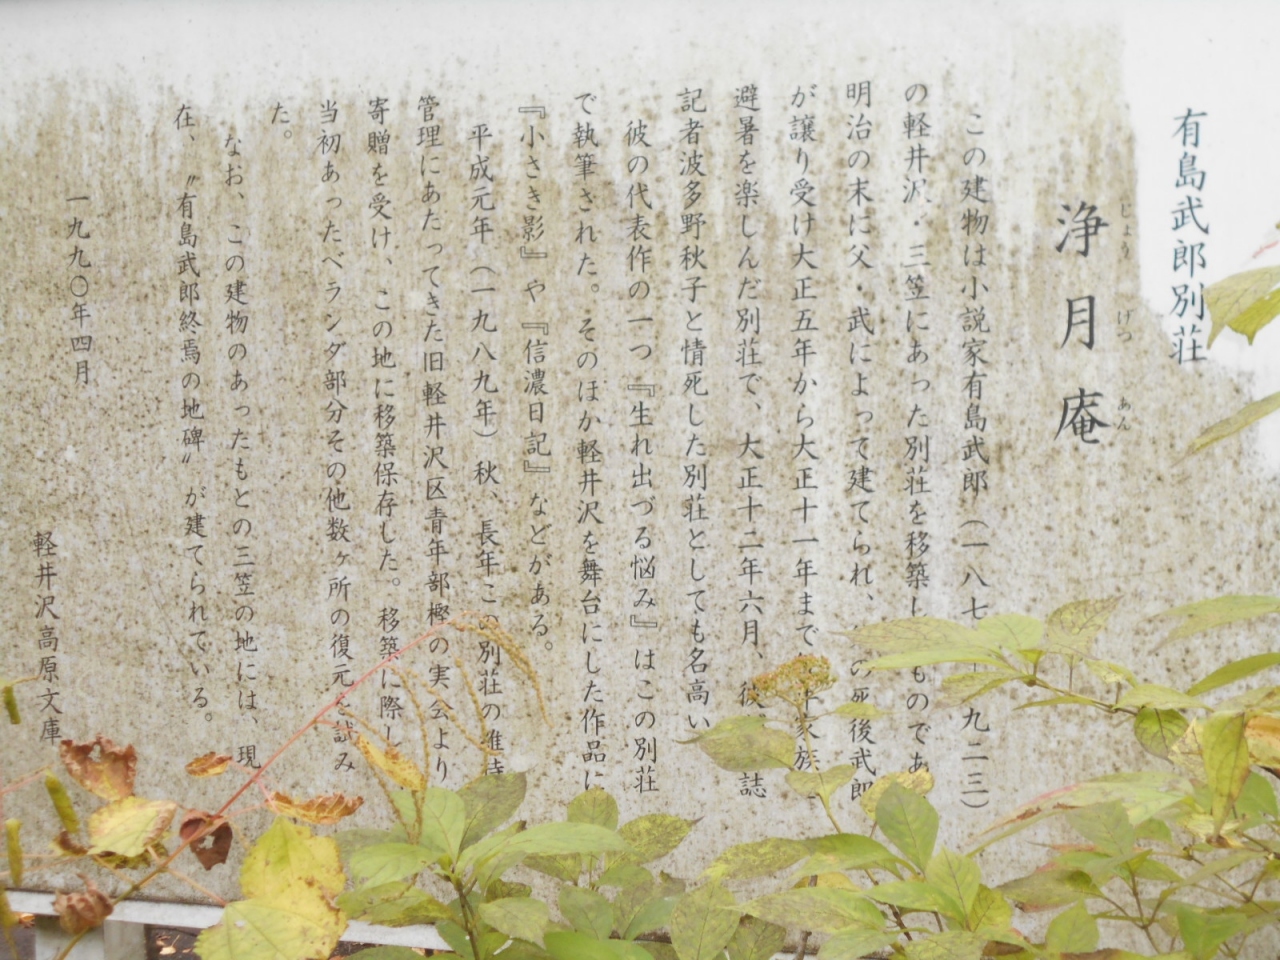 有島武郎別荘
浄月庵
じょう げつ あん
この建物は小説家有島武郎（一八七 九二三）
の軽井沢・三笠にあった別荘を移築し ものであ
明治の末に父・武によって建てられ、 の死後武郎
が譲り受け大正五年から大正十一年まで 家族
避暑を楽しんだ別荘で、大正十二年六月、彼 誌
記者波多野秋子と情死した別荘としても名高い
彼の代表作の一つ『生れ出づる悩み』はこの別荘
で執筆された。そのほか軽井沢を舞台にした作品に
『小さき影』や『信濃日記』などがある。
平成元年（一九八九年）秋、長年この別荘の維持
管理にあたってきた旧軽井沢区青年部樫の実会より
寄贈を受け、この地に移築保存した。移築に際し
当初あったベランダ部分その他数ヶ所の復元を試み
た。
なお、この建物のあったもとの三笠の地には、現
在、〝有島武郎終焉の地碑〟が建てられている。
一九九〇年四月
軽井沢高原文庫